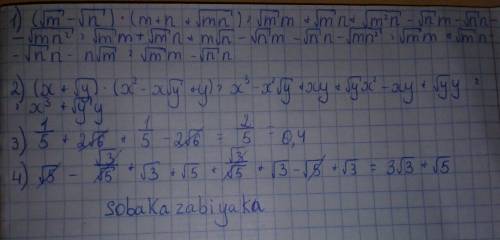 1) (√m - √n) · (m + n + √mn) = √m m + √m n + √m²n - √n m - √n n -
- √mn² = √m m + √m n + m√n - √n m - √n n - √mn² = √m m + √m n -
- √n n - n√m = √m m - √n n
2) (x + √y) · (x² - x√y + y) = x³ - x²√y + xy + √y x² - xy + √y y =
= x³ + √y y
3) 1/5 + 2√6 + 1/5 - 2√6 = 2/5 = 0,4
4) √5 - √3/√5 + √3 + √5 + √3/√5 + √3 - √5 + √3 = 3√3 + √5
sobakazabiyaka